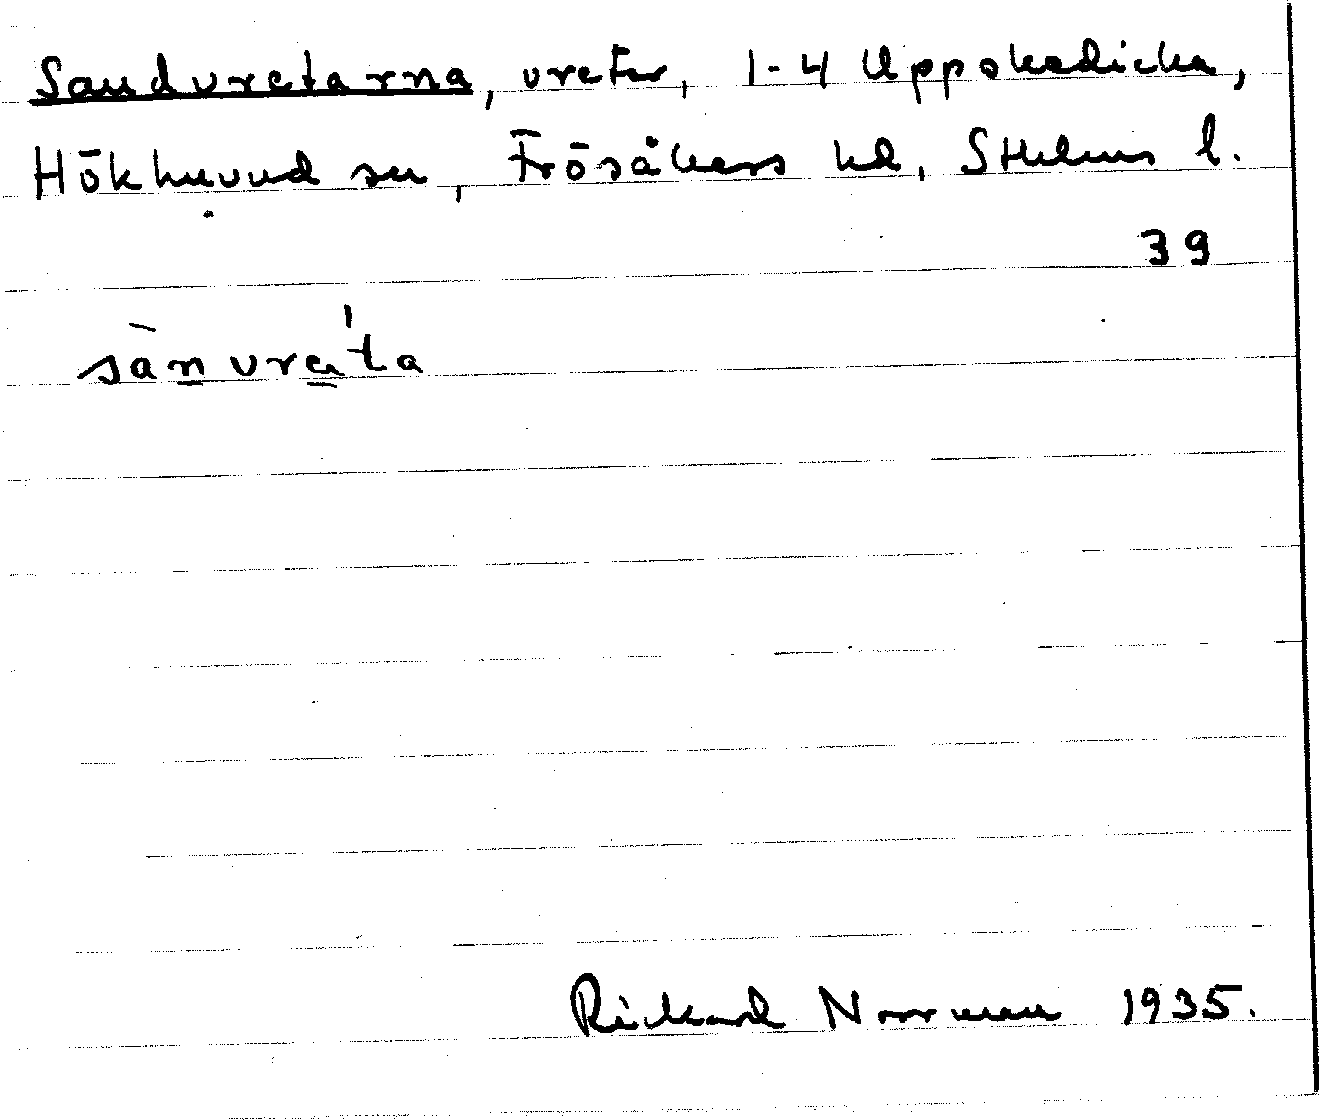 Sandvretarna, vretar, 1-4 Uppskedicka,
Hökhuvud sn, Frösåkers hd, Sthlms l.
39
sànvre̲´ta
Rickard Norrman 1935.